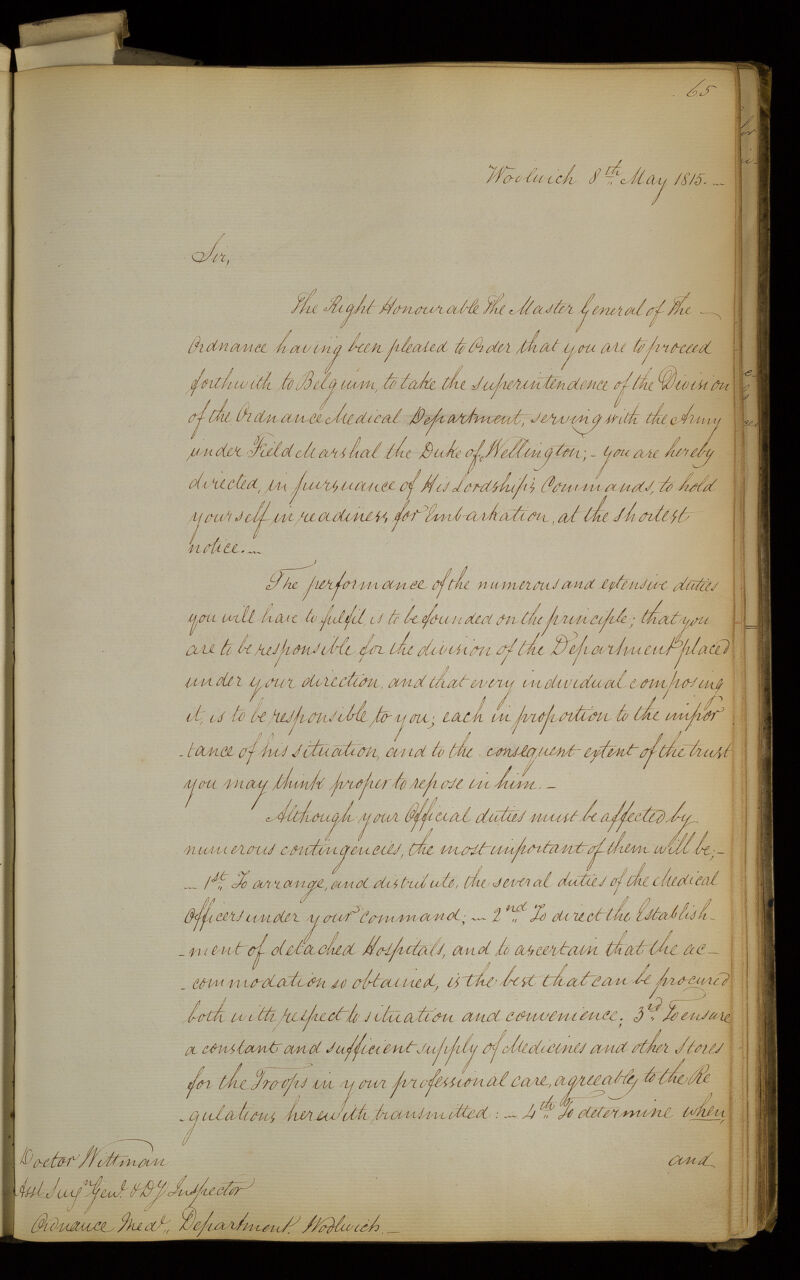 65
Woolwich 8th May 1815. —
Sir,
The Right Honourable The Master General of the —
Ordnance having been pleased to Order that you are to proceed
forthwith to Belgium, to take the superintendence of the Division
of the Ordnance Medical Department, serving with the Army
under Field Marshal the Duke of Wellington; - you are hereby
directed, in pursuance of His Lordship's Commands, to hold
yourself in readiness for Embarkation, at the shortest
notice. —
The performance of the numerous and extensive duties
you will have to fulfil is to be founded on the principle; that you
are to be responsible for the division of the Department placed
under your direction, and that every individual composing
it, is to be responsible to you; each in proportion to the impor
-tance of his situation, and to the consequent extent of the trust
you may think proper to repose in him. —
Although your Official duties must be affected by
numerous contingencies, the most important of them will be; —
— 1st To arrange, and distribute, the several duties of the Medical
Officers under your command; — 2nd To direct the Establish-
-ment of detached Hospitals, and to ascertain that the ac-
-commodation so obtained, is the best that can be procured
both with respect to situation and convenience; 3rd To ensure
a constant and sufficient supply of Medicines and other Stores
for the Troops in your professional care, agreeably to the Re
-gulations herewith transmitted: — 4th To determine when,
and
Doctor Wittman
Asst Surgn Genl & Dy Inspector
Ordnance Medl Department Woolwich —